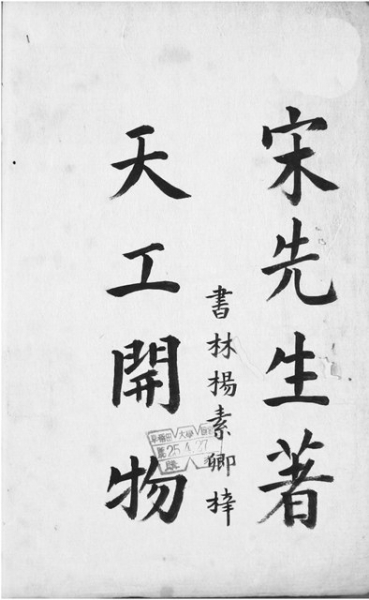 宋先生著
書林楊素卿梓
天工開物
25.4.27